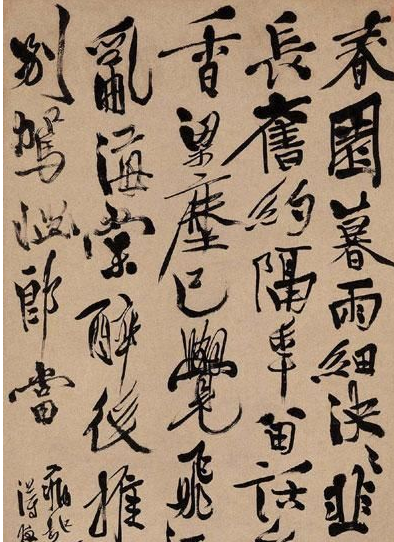 春園暮雨細泱〻韭
長舊約隔年留話
香梁塵已覺飛
亂海棠醉後推
別駕郎當